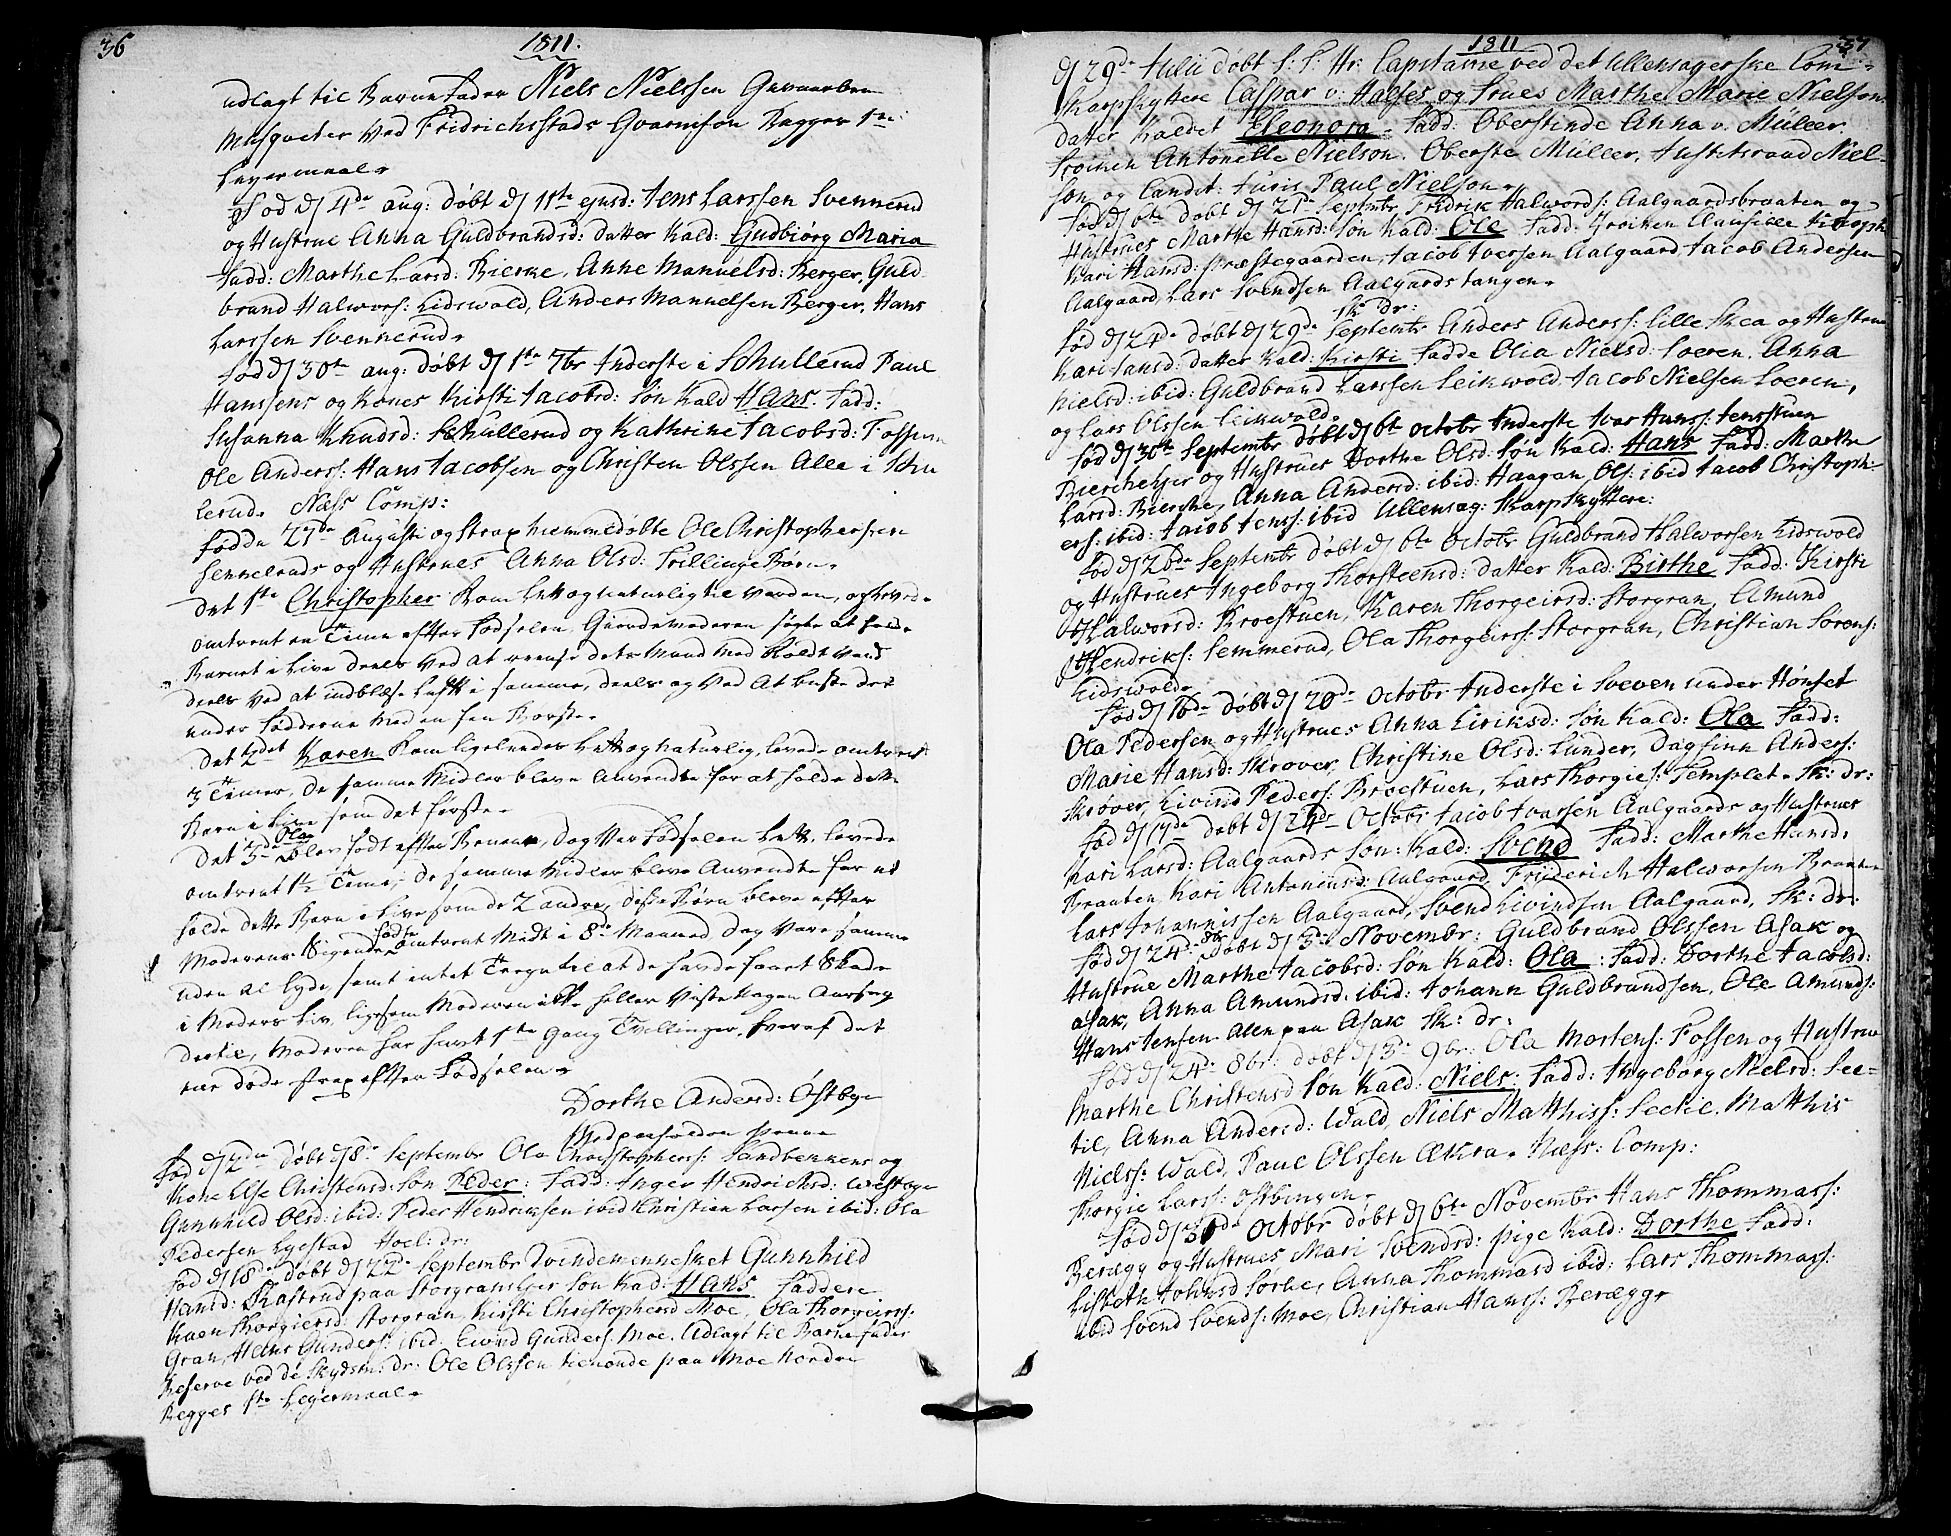 36
1811.
udlagt til Barne Fader Niels Nielssen Gevaarben
Musqueter ved Fridrichsstads Guarnison Begges 1ste
Leyermaal
Fød d/ 4de aug: døbt d/ 11te ejusd: Jens Larssen Svennerud
og Hustrue Anna Guldbrandsd: datter kald: Gudbiørg Maria
Fadd: Marthe Larsd: Bierke, Anne Manuelsd: Berger, Guld-
brand Halwors: Eidswold, Anders Manuelsen Berger, Hans
Larssen Svennerud
Fød d/ 30te aug: døbt d/ 1ste 7br Inderste i Schullerud Paul
Hanssens og Kones Kirsti Jacobsd: Søn kald Hans. Fadd:
Susanna Knudsd: Schullerud og Kathrine Jacobsd: Fossum
Ole Anderss: Hans Jacobsen og Christen Olssen Alle i Schu
lerud. Næss Comp:
Fødde 27de Augusti og strax hiemmedøbte Ole Christophersen
og Hustrues Anna Olsd: Trillinge Børn.
Det 1ste Christopher kom let og naturlig til verden, og levede
omtrent en Time efter Fødselen, Giordemoderen søgte at holde
Barnet i Live deels ved at rense dets Mund med koldt vand
deels ved at indblæse Luft i samme, deels og ved at børste det
under Fødderne med en Børste.
Det 2det Karen kom ligeledes let og naturlig, levede omtrent
3 Timer, de samme Midler bleve anvendte for at holde dette
Barn i Live som det første.
Det 3de Ola blev født efter Benene, dog var Fødselen let, levede
omtrent 1½ Time, de samme Midler bleve Anvendte for at
holde dette Barn i Live som de 2 andre, disse Børn bleve efter
Moderens Sigende fødte omtrent Midt i 8de Maaned dog vare samme
uden al Lyde samt intet Tegn til at de havde faaet Skade
i Moders Liv, ligesom Moderen ikke heller viste nogen Aarsag
dertil, Moderen har havt 1ste Gang Tvillinger, hvoraf det
ene døde strax efter Fødselen
Dorthe Andersd: Østbye
Med paaholden Penne
Fød d/ 2den døbt d/ 8de Septembr Ola Christophers: Sandbekkens og
Kone Else Christensd: Søn Peder: Fadd: Inger Hendrichsd:
Gunnhild Olsd: ibid: Peder Hendriksen ibid Christian Larsen ibid: Ola
Pedersen Lystad Hoel: dr:
Fød d/ 18de døbt d/ 22de Septembr Qvindemennesket Gunnhild
Hansd: Skastrud paa Storgranseier Søn kald: Hans Faddere
Karen Thorgiersd: Storgran, Kirsti Christophersd Moe, Ola Thorgeirss:
Gran, Hans Gunders: ibid. Eivind Gunders: Moe. Udlagt til Barnefader
Reserve ved de Skydsm: dr: Ole Olssen tienende paa Moe Nordre
Begges 1ste Leyermaal
1811
37
d/ 29de Julii døbt S: T: Hr: Capitaine ved det Ullensagerske Com-
Skarpskyttere Caspar v: Halses og Frues Marthe Marie Nielson
datter kaldet Eleonora. Fadd: Oberstinde Anna v. Müller.
Frøiken Antonette Nielson. Oberste Müller, Justitsraad Niel-
son og Candit: Juris Paul Nielson.
Fød d/ 6te døbt d/ 21de Septembr Fridrik Halwords: Aalgaardsbraaten og
Hustrues Marthe Hansd: Søn kald: Ole Fadd:
Kari Hansd: Præstegaarden, Jacob Iversen Aalgaard Jacob Andersen
Aalgaard, Lars Svendsen Aalgaardstangen.
Sk: Dr:
Fød d/ 24de døbt d/ 29de Septembr Anders Anderss: lille Skea og Hustrue
Kari Jansd: datter kald: Kirsti Fadde Olia Nielsd: Loeren, Anna
Nielsd: ibid: Guldbrand Larssen Leikwold Jacob Nielsen Loeren,
og Lars Olssen Leikwold.
Fød d/ 30te Septembr døbt d/ 6te octobr Inderste Ivar Hanss: Jensstuen
Bierkeseier og Hustrues Dorthe Olsd: Søn kald: Hans Fadd: Marthe
Larsd: Bierche, Anna Andersd: ibid: Haagen Ols: ibid Jacob Christoph-
ers: ibid: Jacob Jenss: ibid Ullensag: Skarpskyttere:
Fød d/ 26de Septembr døbt d/ 6te Octobr Guldbrand Halworsen Eidswold
og Hustrues Ingeborg Thorsteensd: datter kald: Birthe Fadd: Kirsti
Halworsd: Kroestuen, Karen Thorgeirsd: Storgran, Amund
Hendriks: Semmerud, Ola Thorgeirss: Storgran, Christian Sørens:
Eidswold.
Fød d/ 16de døbt d/ 20de Octobr Inderste i Sveen under Hønset
Ola Pedersen og Hustrues Anna Eiriksd: Søn kald: Ola Fadd:
Marie Hansd: Skrøver, Christine Olsd: Lunder, Dagfinn Anders:
Skrøver, Eivind Peders: Broestuen, Lars Thorgies: Templet. Sk: dr:
Fød d/ 17de døbt d/ 27de Octobr Jacob Ivarsen Aalgaards og Hustrues
Kari Larsd: Aalgaards Søn: kald: Svend Fadd: Marthe Hansd:
Braaten Kari Antoniusd: Aalgaard, Friderich Halworsen Braaten
Lars Johannissen Aalgaard, Svend Eivindsen Aalgaard, Sk: dr:
Fød d/ 24de 8br døbt d/ 3de Novembr: Guldbrand Olssen Asak og
Hustrue Marthe Jacobsd: Søn kald: Ola: Fadd: Dorthe Jacobsd:
Asak, Anna Amundsd: ibid: Johann Guldbrandsen, Ole Amunds:
Hans Jensen Alle paa Asak Sk: dr.
Fød d/ 24de 8br: døbt d/ 3de 9br: Ola Mortens: Fossen og Hustrue
Marthe Christensd Søn kald: Niels: Fadd: Ingeborg Nielsd: See-
til, Anna Andersd: Wald, Niels Matthiss: Seetil. Matthis
Nielss: Wald, Paul Olssen Ækra. Næss: Comp:
Thorgie Larss: Østbingen.
Fød d/ 30de Octobr døbt d/ 6te Novembr Hans Thommass:
Beregg og Hustrues Mari Svendsd: pige kald: Dorthe Fadd:
Lisbeth Johnsd Sørbe, Anna Thommasd ibid: Lars Thommass:
ibid Svend Svends: Moe, Christian Hanss: Beregg